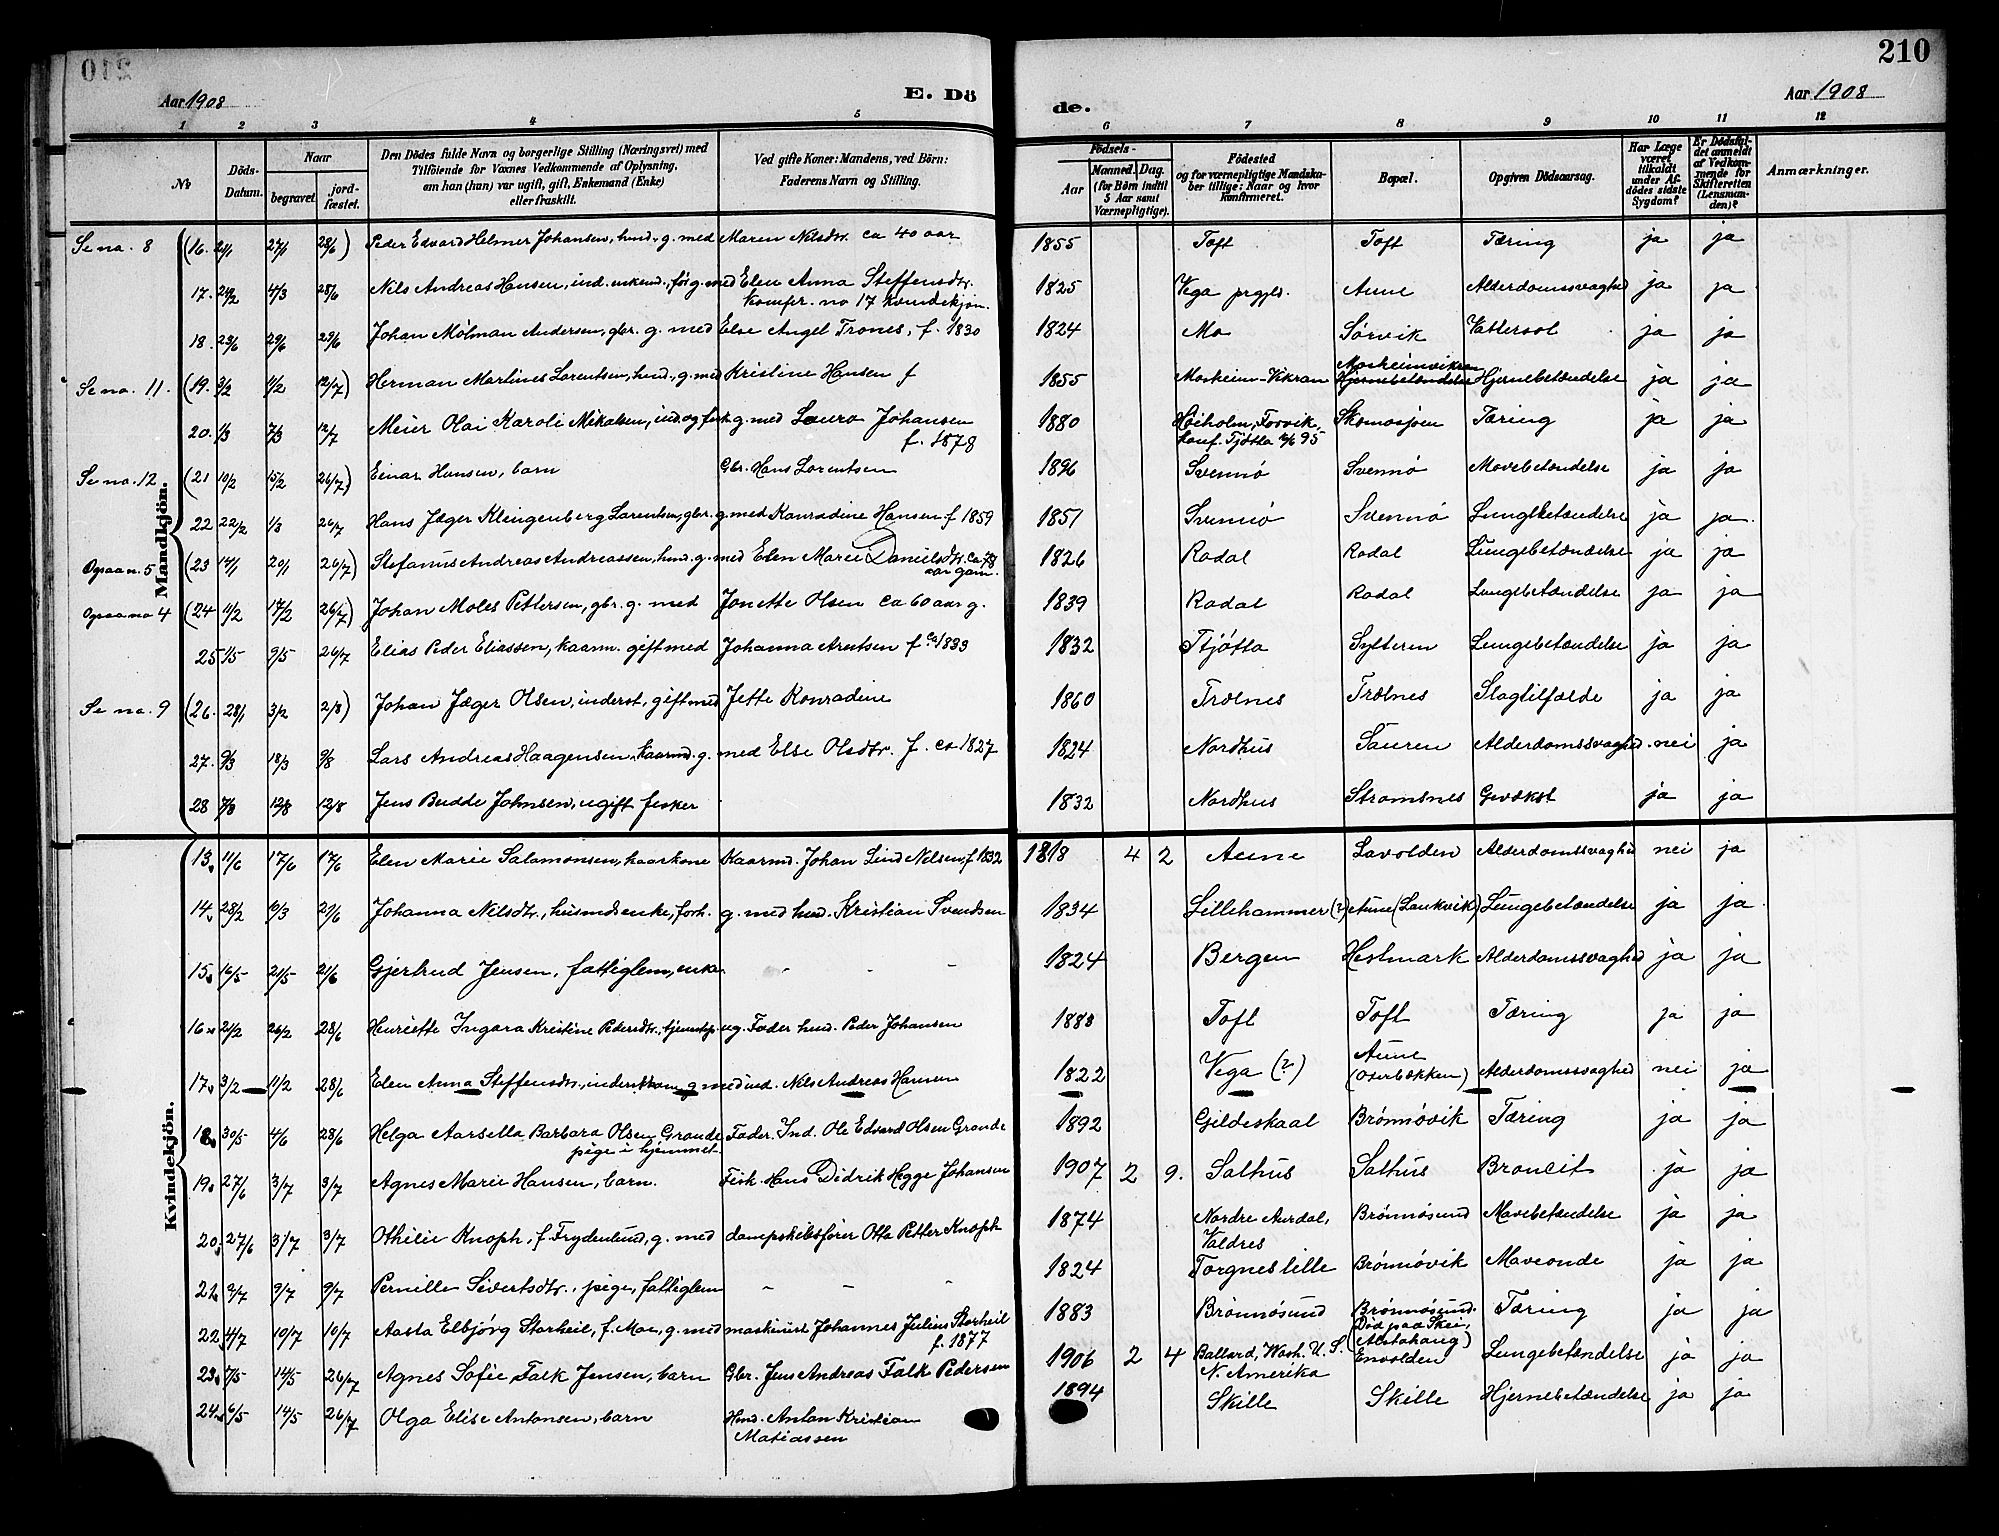 210
Aar 1908
E. Dö
de.
Aar 1908
1 2 3 4 5 6 7 8 9 10 11 12
No
Döds-Datum.
Naar
begravet.
jord-fæstet.
Den Dödes fulde Navn og borgerlige Stilling (Næringsvei) med
Tilföiende for Voxnes Vedkommende af Oplysning,
om han (hun) var ugift, gift, Enkemand (Enke)
eller fraskilt.
Ved gifte Koner: Mandens, ved Börn:
Faderens Navn og Stilling.
Födsels-
Aar
Maaned. Dag.
(for Börn indtil
5 Aar samt
Værnepligtige).
Födested
og for værnepligtige Mandska-
ber tillige: Naar og hvor
konfirmeret.
Bopæl.
Opgiven Dödsaarsag.
Har Læge
været
tilkaldt
under Af-
dödes sidste
Sygdom?
Er Dödsfal-
det anmeldt
af Vedkom-
mende for
Skifteretten
(Lensman-
den)?
Anmærkninger.
Mandkjön.
Se no. 8 (16. 21/1 27/1 28/6) Peder Edvard Helmer Johansen, husm., g. med Maren Nilsdtr. ca 40 aar 1855 Toft Toft Tæring ja ja
17. 24/2 4/3 28/6 Nils Andreas Hansen, ind. enkem., før g. med Elen Anna Steffensdtr. 1825 Vega prgjld. Aune Alderdomssvaghed ja ja
Komfr. no 17 kvindekjøn.
18. 23/6 29/6 29/6 Johan Mølman Andersen, gbr. g. med Else Angel Trones, f. 1830 1824 Mo Sørvik Vattersot ja ja
Se no. 11. (19. 3/2 11/2 12/7) Herman Martines Lorentsen, husm., g. med Kristine Hansen f 1855 Mosheim-Vikran Mosheimvikran Hjernebetændelse ja ja
20. 1/3 7/3 12/7 Meier Olai Karoli Mikalsen, ind. og fisk. g. med Laura Johansen 1880 Høiholm, Forvik, Tæring ja ja
f. 1878
konf. Tjøtta 95
Se no. 12 (21 10/2 15/2 26/7) Einar Hansen, barn Gbr. Hans Lorentsen 1896 Svennø Svennø Mavebetændelse ja ja
22 22/2 1/3 26/7 Hans Jæger Klingenberg Lorentsen, gbr. g. med Konradine Hansen f 1859 1851 Svennø Svennø Lungebetændelse ja ja.
Ogsaa n. 5 (23 14/1 20/1 26/7) Stefanus Andreas Andreassen, husm. g. med Elen Marie Danielsdtr. ca 78 1826 Rodal Rodal Lungebetændelse ja ja
aar gam.
Ogsaa no 4 (24 11/2 17/2 26/7) Johan Moles Pettersen, gbr. g. med Jonette Olsen ca 60 aar g. 1839 Rodal Rodal Lungebetændelse ja ja
25 1/5 9/5 26/7 Elias Peder Eliassen, kaarm. gift med Johanna Arntsen f ca 1833 1832 Tjøtta Sylteren Lungebetændelse ja ja
Se no. 9 (26. 28/1 3/2 2/8) Johan Jæger Olsen, inderst, gift med Jette Konradine 1860 Trælnes Trælnes Slagtilfælde ja ja
27. 9/3 18/3 9/8 Lars Andreas Haagensen, kaarmd. g. med Else Olsdtr. f. ca 1827 1824 Nordhus Sauren Alderdomssvaghed nei ja
28 7/8 12/8 12/8 Jens Budde Johnsen, ugift fisker 1832 Nordhus Stromsnes Gevækst ja ja
Kvindekjön.
13. 11/6 17/6 17/6 Elen Marie Salamonsen, kaarkone Kaarmd. Johan Lind Nilsen, f 1832 1818 4 2 Aune Lavolden Alderdomssvaghed nei ja
14. 28/2 6/3 21/6 Johanna Nilsdtr., husmdsenke, forh. g. med husm. Kristian Svendsen 1834 Lillehammer (?) Aune (Laukvik) Lungebetændelse ja ja
15. 16/5 21/5 21/6 Gjertrud Jensen, fattiglem, enke - - - 1824 Bergen Hestmark Alderdomssvaghed ja ja
16. 21/2 26/2 28/6 Henriette Ingara Kristine Pedersdtr., tjenestep. ug. Fader husm. Peder Johansen 1888 Toft Toft Tæring ja ja
17. 3/2 11/2 28/6 Elen Anna Steffensdtr., inderstkone, g. med ind. Nils Andreas Hansen 1822 Vega (?) Aune Alderdomssvaghed nei ja
(Osterbækken)
18. 30/5 4/6 28/6 Helga Aarsella Barbara Olsen Grande Fader: Ind. Ole Edvard Olsen Grande 1892 Gildeskaal Brønnøvik Tæring ja ja
pige i hjemmet.
19. 27/6 3/7 3/7 Agnes Marie Hansen, barn. Fisk. Hans Didrik Hegge Johansen 1907 2 9. Salhus Salhus Broncit ja ja
20. 27/6 3/7 3/7 Othilie Knoph, f. Frydenlund, g. med dampskibsfører Otto Petter Knoph 1874 Nordre Aurdal, Brønnøsund Mavebetændelse ja ja
Valdres
21. 2/7 9/7 9/7 Pernille Sivertsdtr., pige, fattiglem - - - 1824 Torgneslille Brønnøvik Maveonde ja ja
22. 4/7 10/7 10/7 Aasta Elbjørg Storheil, f. Moe, g. med maskinist Johannes Julius Storheil 1883 Brønnøsund Brønnøsund. Tæring ja ja
f. 1877
Død paa Skei,
(Alstahaug)
23. 7/5 14/5 26/7 Agnes Sofie Falk Jensen, barn Gbr. Jens Andreas Falk Pedersen 1906 2 4 Ballard, Wash. U. S. Envolden Lungebetændelse ja ja
N. Amerika
24. 6/5 14/5 26/7 Olga Elise Antonsen, barn Husm. Anton Kristian 1894 Skille Skille Hjernebetændelse ja ja
Matiassen